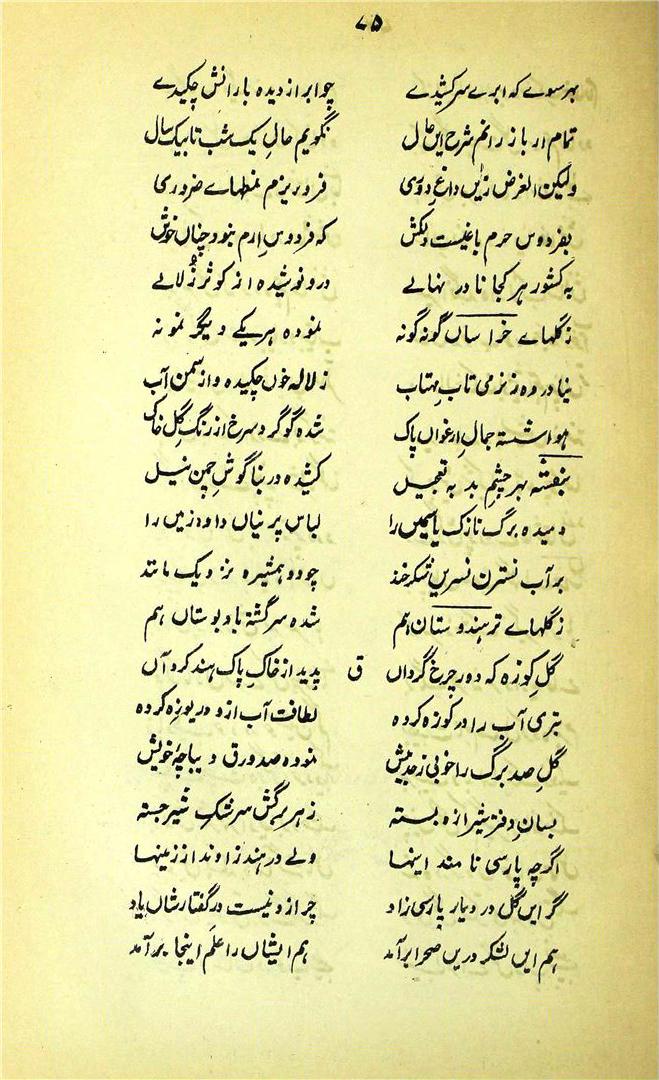 ۷۵
بہر سوے کہ ابرے سر کشیدے چو ابر از دیدہ بارانش چکیدے
تمام ار باز رانم شرح ایں حال نگویم حال یک شب تا بیک سال
ولیکن الغرض زیں داغ دوری فرو ریزم نمطہاے ضروری
بفردوس حرم باغیست دلکش کہ فردوس ارم نبود چناں خوش
بہ کشور ہر کجا نادر نہالے درو نوشیدہ از کوثر زلالے
ز گلہاے خراساں گونہ گونہ نمودہ ہریکے دیگر نمونہ
بنادر وہ ز نرمی تاب مہتاب ز لالہ خوں چکیدہ و از سمن آب
ہوا شستہ جمال ارغواں پاک شدہ گوگرد سرخ از رنگ گل خاک
بنفشہ بہر چشم بد بہ تعجیل کشیدہ در بناگوش چمن نیل
دمیدہ برگ نازک یاسمیں را لباس پرنیاں دادہ زمیں را
بر آب نسترن نسریں شکرخند چو دو ہمشیرہ نزدیک مانند
ز گلہاے تر ہندوستاں ہم شدہ سرگشتہ باد بوستاں ہم
گل کوزہ کہ دور چرخ گرداں ق پدید از خاک پاک ہند کرد آں
بتری آب را در کوزہ کردہ لطافت آب ازو دریوزہ کردہ
گل صد برگ را خوبی ز حد بیش نمودہ صد ورق دیباچۂ خویش
بسان دفتر شیرازہ بستہ ز ہر برگش سرشک شیر جستہ
اگرچہ پارسی نامند اینہا ولے در ہند زاوند از زمینہا
گر ایں گل در دیار پارسی زاد چرا زو نیست در گفتارشاں یاد
ہم ایں لشکر دریں صحرا برآمد ہم ایشاں را علم اینجا برآمد